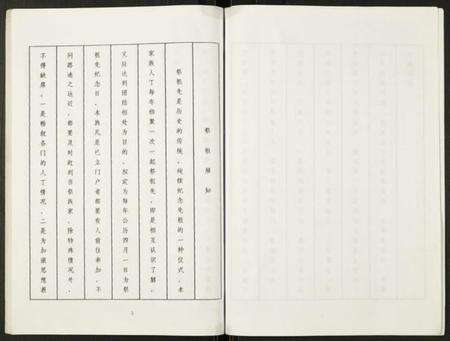 祭祖须知
祭祖先是历史的传统，缅怀纪念先祖的一种仪式，本
家族人丁每年相聚一次一起祭祖先，即是相互认识了解，
又应达到团结相处为目的，拟定为每年公历四月一日为祭
祖先纪念日，本族凡是已立门户者都要有人前往参加，不
问路途之远近，都要及时赶到当祭族家，除特殊情况外，
不得缺席。一是畅叙各门的人丁情况，二是为加强思想教